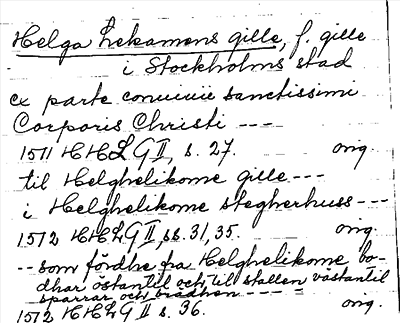 Helga Lekamens gille, f. gille
i Stockholms stad
ex parte conuiuii sanctissimi
Corporis Christi ---
1511 HHLG II, s. 27. orig.
til Helghelikome gille ---
i Helghelikome stegherhuss ---
1512 HHLG II, ss. 31, 35. orig.
-- som fördhe fra Helghelikome bo-
dhar östantil och til stallen västantil
sparrar och brädhen ----
1512 HHLG II s. 36. orig.